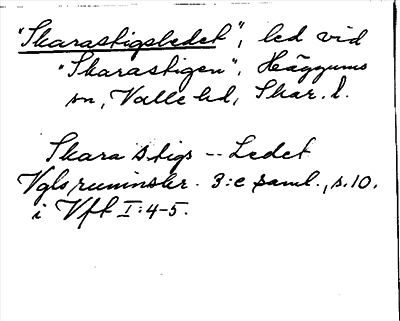 "Skarastigsledet", led vid
"Skarastigen", Häggums
sn, Valle hd, Skar. l.
Skara stigs -- Ledet
Vgls runinskr. 3:e saml., s. 10.
i Vft I:4-5.